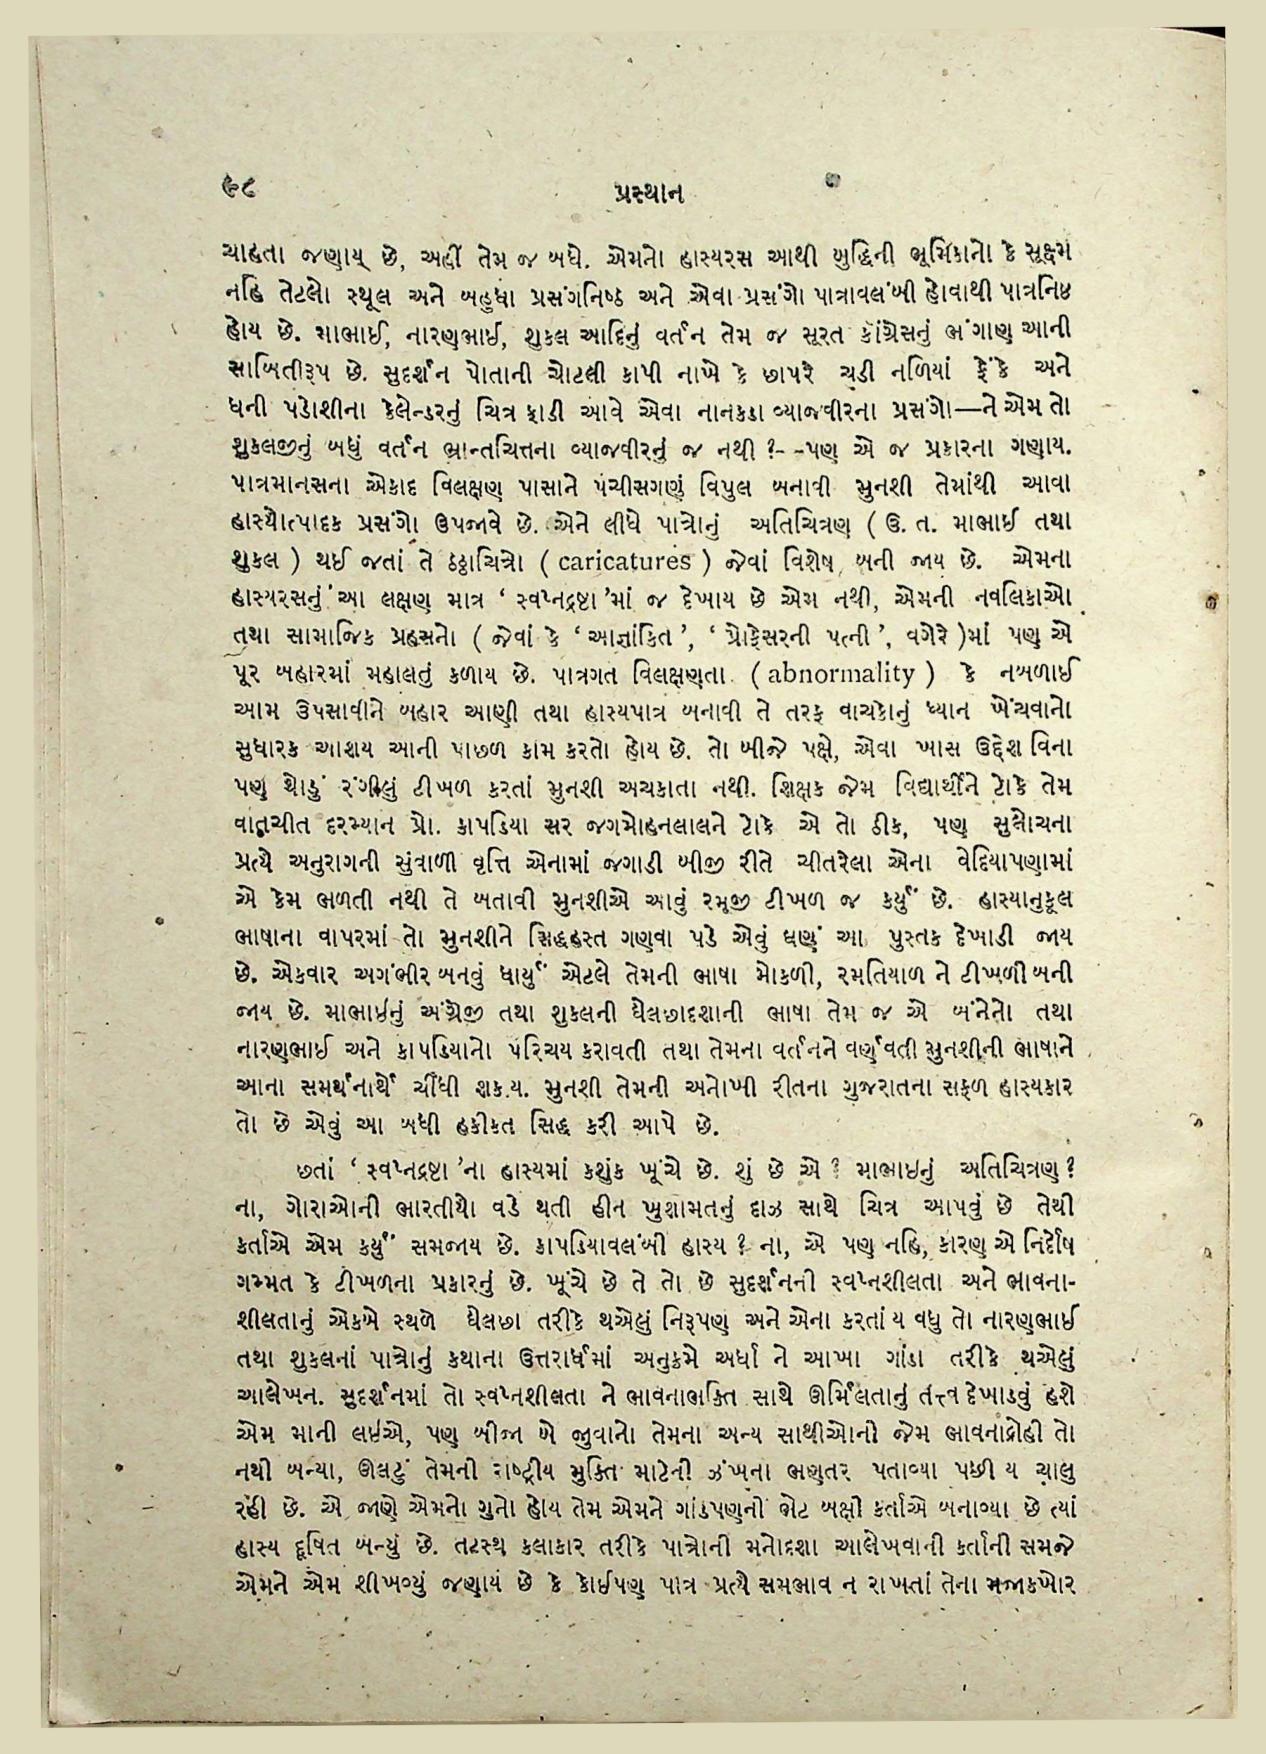 ૯૮ પ્રસ્થાન
ચાહતા જણાય્ છે, અહીં તેમ જ બધે. એમનો હાસ્યરસ આથી બુદ્ધિની ભૂમિકાનો કે સૂક્ષ્મ
નહિ તેટલો સ્થૂલ અને બહુધા પ્રસંગનિષ્ઠ અને એવા પ્રસંગો પાત્રાવલંબી હોવાથી પાત્રનિષ્ઠ
હોય છે. માભાઈ, નારણભાઈ, શુકલ આદિનું વર્તન તેમ જ સૂરત કોંગ્રેસનું ભંગાણ આની
સાબિતીરૂપ છે. સુદર્શન પોતાની ચોટલી કાપી નાખે કે છાપરે ચડી નળિયાં ફેંકે અને
ધની પડોશીના કેલેન્ડરનું ચિત્ર ફાડી આવે એવા નાનકડા વ્યાજવીરના પ્રસંગો—ને એમ તો
શુકલજીનું બધું વર્તન ભ્રાન્તચિત્તના વ્યાજવીરનું જ નથી ?--પણ એ જ પ્રકારના ગણાય.
પાત્રમાનસના એકાદ વિલક્ષણ પાસાને પચીસગણું વિપુલ બનાવી મુનશી તેમાંથી આવા
હાસ્યોત્પાદક પ્રસંગો ઉપજાવે છે. એને લીધે પાત્રોનું અતિચિત્રણ ( ઉ. ત. માભાઈ તથા
શુકલ ) થઈ જતાં તે ઠઠ્ઠાચિત્રો ( caricatures ) જેવાં વિશેષ બની જાય છે. એમના
હાસ્યરસનું આ લક્ષણ માત્ર ‘ સ્વપ્નદ્રષ્ટા ’માં જ દેખાય છે એમ નથી, એમની નવલિકાઓ
તથા સામાજિક પ્રહસનો ( જેવાં કે ‘ આજ્ઞાંકિત ’, ‘ પ્રોફેસરની પત્ની ’, વગેરે )માં પણ એ
પૂર બહારમાં મહાલતું કળાય છે. પાત્રગત વિલક્ષણતા ( abnormality ) કે નબળાઈ
આમ ઉપસાવીને બહાર આણી તથા હાસ્યપાત્ર બનાવી તે તરફ વાચકોનું ધ્યાન ખેંચવાનો
સુધારક આશય આની પાછળ કામ કરતો હોય છે. તો બીજે પક્ષે, એવા ખાસ ઉદ્દેશ વિના
પણ થોડું રંગીલું ટીખળ કરતાં મુનશી અચકાતા નથી. શિક્ષક જેમ વિદ્યાર્થીને ટોકે તેમ
વાતચીત દરમ્યાન પ્રો. કાપડિયા સર જગમોહનલાલને ટોકે એ તો ઠીક, પણ સુલોચના
પ્રત્યે અનુરાગની સુંવાળી વૃત્તિ એનામાં જગાડી બીજી રીતે ચીતરેલા એના વેદિયાપણામાં
એ કેમ ભળતી નથી તે બતાવી મુનશીએ આવું રમૂજી ટીખળ જ કર્યું છે. હાસ્યાનુકૂલ
ભાષાના વાપરમાં તો મુનશીને સિદ્ધહસ્ત ગણવા પડે એવું ઘણું આ પુસ્તક દેખાડી જાય
છે. એકવાર અગંભીર બનવું ધાર્યું એટલે તેમની ભાષા મોકળી, રમતિયાળ ને ટીખળી બની
જાય છે. માભાઈનું અંગ્રેજી તથા શુકલની ઘેલછાદશાની ભાષા તેમ જ એ બંનેનો તથા
નારણભાઈ અને કાપડિયાનો પરિચય કરાવતી તથા તેમના વર્તનને વર્ણવતી મુનશીની ભાષાને
આના સમર્થનાર્થે ચીંધી શકાય. મુનશી તેમની અનોખી રીતના ગુજરાતના સફળ હાસ્યકાર
તો છે એવું આ બધી હકીકત સિદ્ધ કરી આપે છે.
છતાં ‘ સ્વપ્નદ્રષ્ટા ’ના હાસ્યમાં કશુંક ખૂંચે છે. શું છે એ ? માભાઇનું અતિચિત્રણ ?
ના, ગોરાઓની ભારતીયો વડે થતી હીન ખુશામતનું દાઝ સાથે ચિત્ર આપવું છે તેથી
કર્તાએ એમ કર્યું સમજાય છે. કાપડિયાવલંબી હાસ્ય ? ના, એ પણ નહિ, કારણ એ નિર્દોષ
ગમ્મત કે ટીખળના પ્રકારનું છે. ખૂંચે છે તે તો છે સુદર્શનની સ્વપ્નશીલતા અને ભાવના-
શીલતાનું એકબે સ્થળે ઘેલછા તરીકે થએલું નિરૂપણ અને એના કરતાં ય વધુ તો નારણભાઈ
તથા શુકલનાં પાત્રોનું કથાના ઉત્તરાર્ધમાં અનુક્રમે અર્ધા ને આખા ગાંડા તરીકે થએલું
આલેખન. સુદર્શનમાં તો સ્વપ્નશીલતા ને ભાવનાભક્તિ સાથે ઊર્મિલતાનું તત્ત્વ દેખાડવું હશે
એમ માની લઇએ, પણ બીજા બે જુવાનો તેમના અન્ય સાથીઓની જેમ ભાવનાદ્રોહી તો
નથી બન્યા, ઊલટું તેમની રાષ્ટ્રીય મુક્તિ માટેની ઝંખના ભણતર પતાવ્યા પછી ય ચાલુ
રહી છે. એ જાણે એમનો ગુનો હોય તેમ એમને ગાંડપણની ભેટ બક્ષી કર્તાએ બનાવ્યા છે ત્યાં
હાસ્ય દૂષિત બન્યું છે. તટસ્થ કલાકાર તરીકે પાત્રોની મનોદશા આલેખવાની કર્તાની સમજે
એમને એમ શીખવ્યું જણાય છે કે કોઈપણ પાત્ર પ્રત્યે સમભાવ ન રાખતાં તેના મજાકખોર